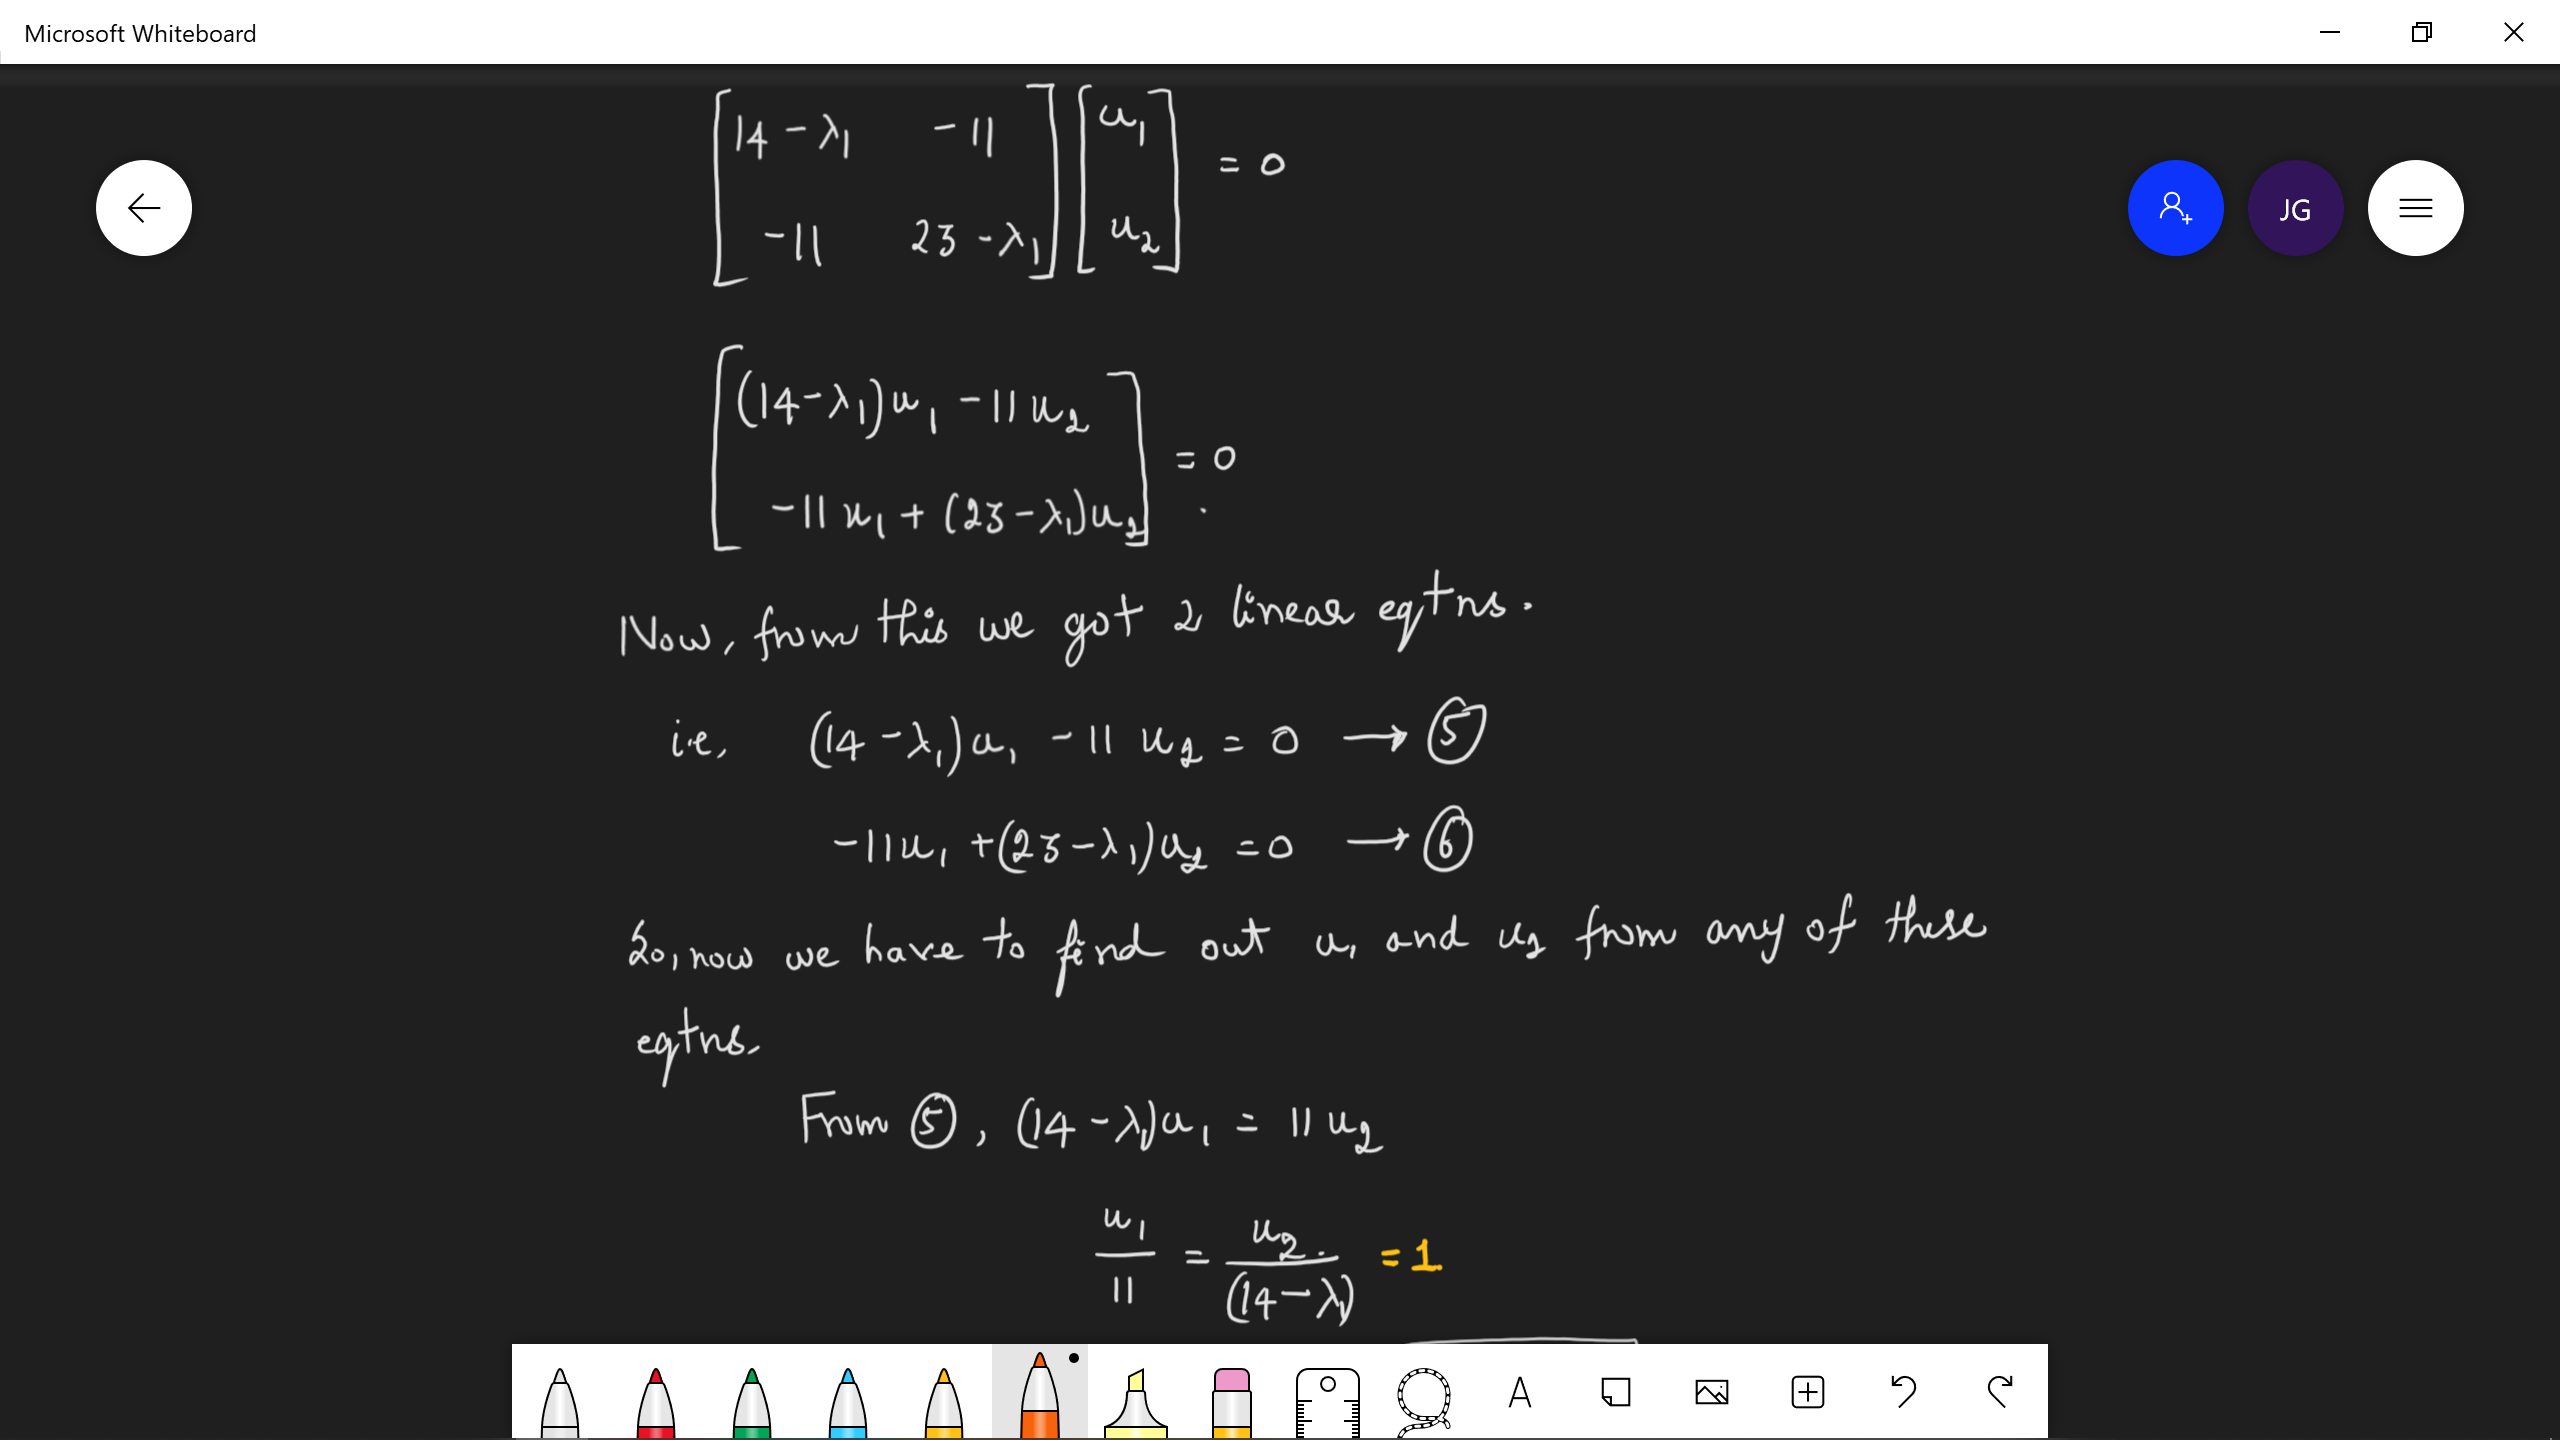 Microsoft Whiteboard
14 - λ₁ -11 u₁
= 0
-11 23 - λ₁ u₂
JG
(14-λ₁)u₁ - 11 u₂
= 0
-11 u₁ + (23-λ₁)u₂
Now, from this we got 2 linear eqtns.
i.e, (14 - λ₁)u₁ - 11 u₂ = 0 → ⑤
-11u₁ + (23-λ₁)u₂ = 0 → ⑥
So, now we have to find out u₁ and u₂ from any of these
eqtns.
From ⑤, (14 - λ₁)u₁ = 11 u₂
u₁/11 = u₂/(14-λ₁) = 1